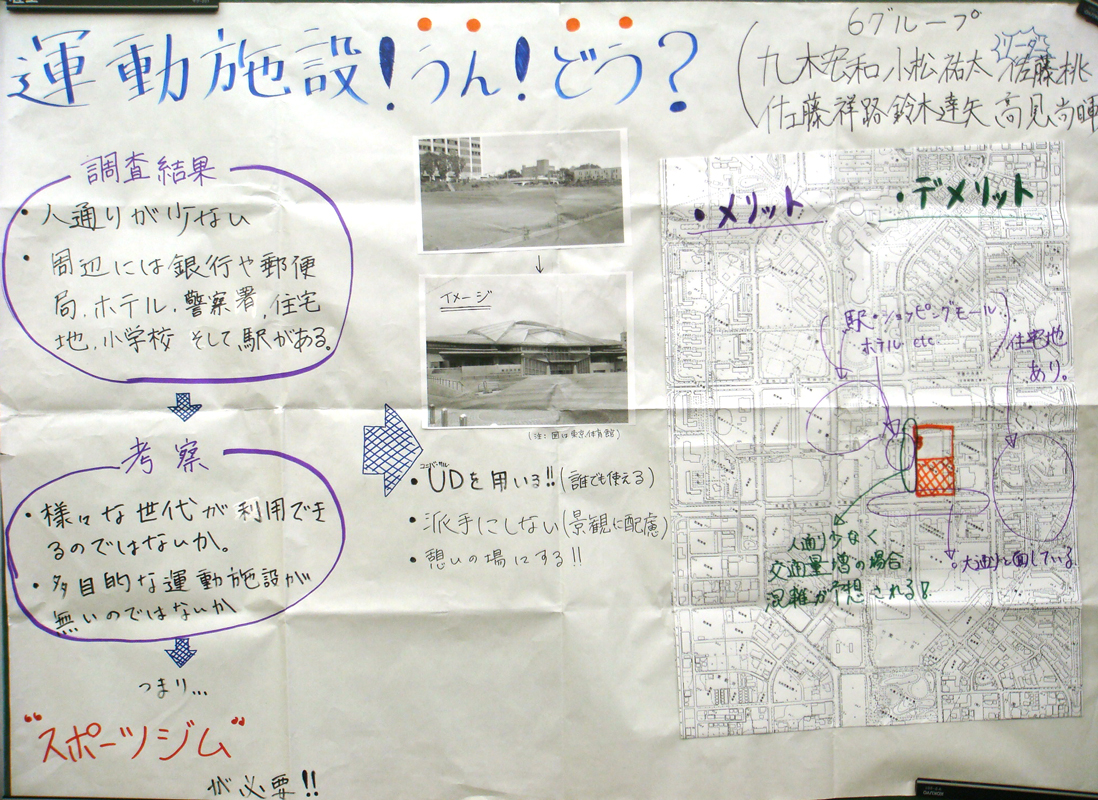 運動施設!うん!どう?
6グループ
リーダー
九木宏和 小松祐太 佐藤桃
佐藤祥路 鈴木達矢 高見尚暉
調査結果
・人通りが少ない
・周辺には銀行や郵便
局、ホテル、警察署、住宅
地、小学校 そして駅がある。
考察
・様々な世代が利用でき
るのではないか。
・多目的な運動施設が
無いのではないか
つまり...
"スポーツジム"
が必要!!
イメージ
(注:図は東京体育館)
ユニバーサル
・UDを用いる!!(誰でも使える)
・派手にしない(景観に配慮)
・憩いの場にする!!
・メリット
・デメリット
駅・ショッピングモール
ホテル etc
住宅地
あり。
人通り少なく
交通量増の場合、
混雑が予想される!
大通りと面している